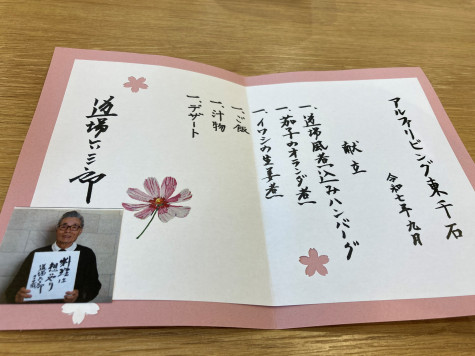 アルファリビング東千石
令和七年九月
献立
一、道場風煮込みハンバーグ
一、茄子のオランダ煮
一、イワシの生姜煮
一、ご飯
一、汁物
一、デザート
道場六三郎
料理は
想いやり
道場六三郎